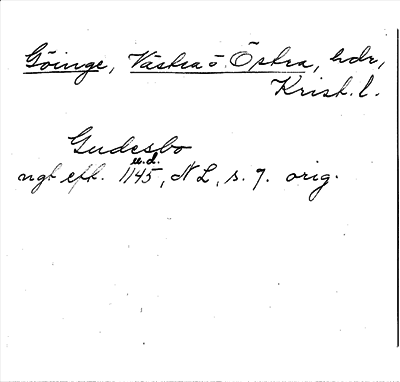 Göinge, Västra o. Östra, hdr,
Krist. l.
Gudesbo
u.d.
ngt eft. 1145, N L, s. 7. orig.